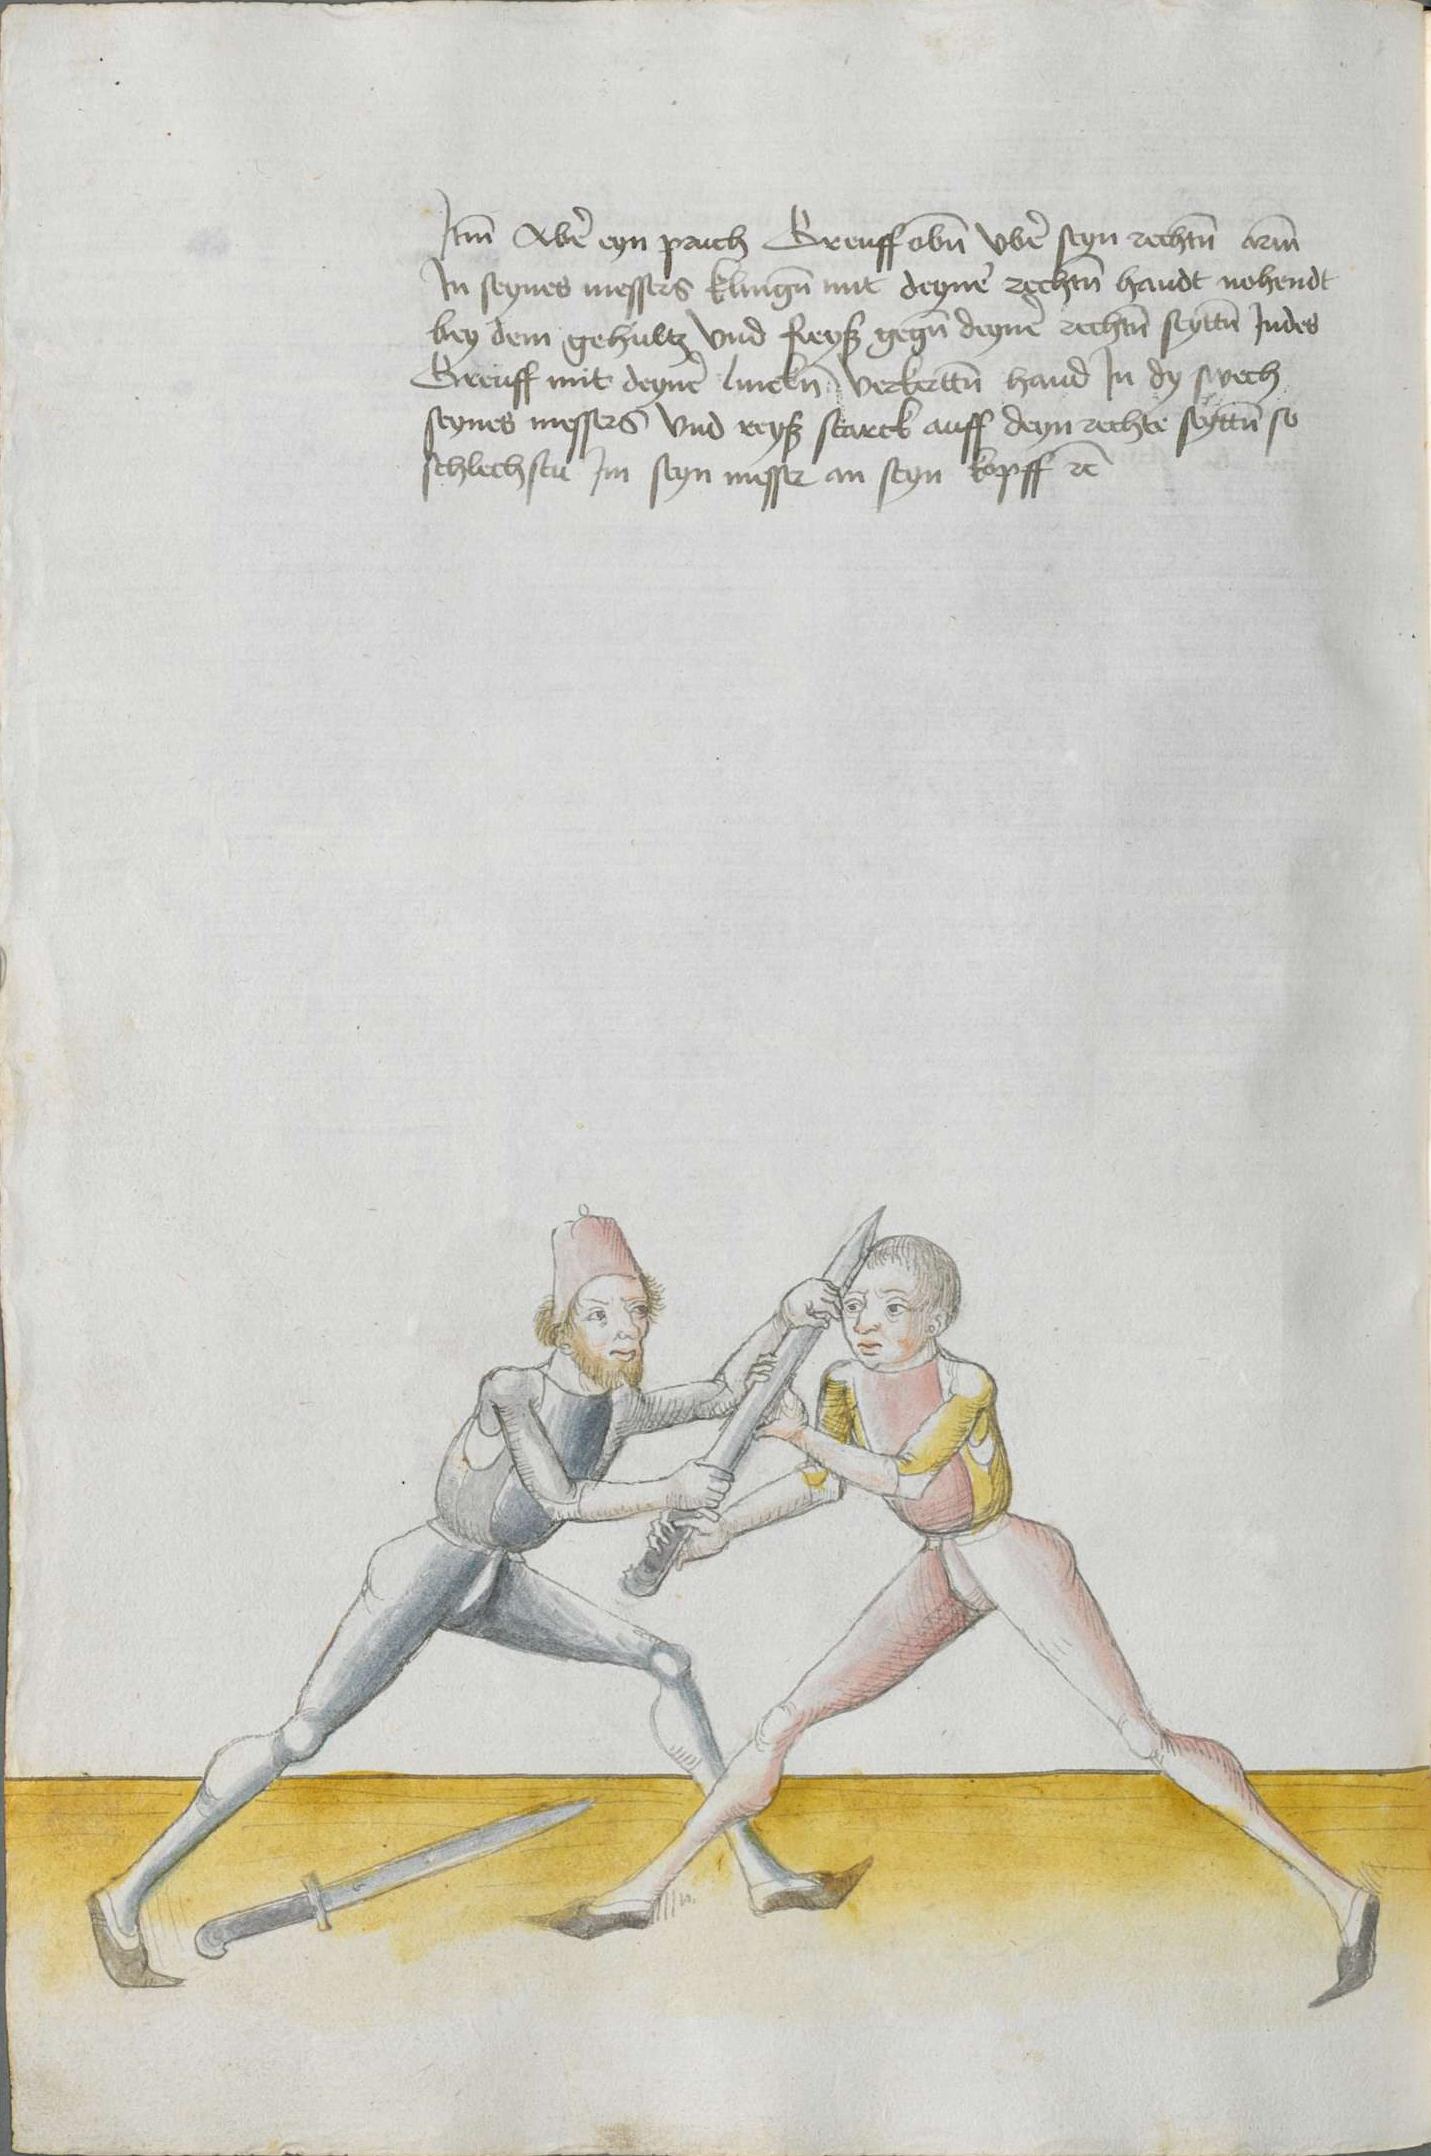 Itm̄ Aber̄ eyn pruch Greuff obn̄ vber̄ seyn rechtn̄ arm̄
In seynes messers klingn̄ mit deyner̄ rechtn̄ handt nohendt
bey dem gehultz Vnd Reyß gegn̄ deyner̄ rechtn̄ seyttn̄ Indes
Greuff mit deyner̄ linckn̄ Verkerttn̄ hand In dy swech
seynes messers Vnd reyß starck auff deyn rechte seyttn̄ so
schlechstu Im seyn messer an seyn kopff rc̄